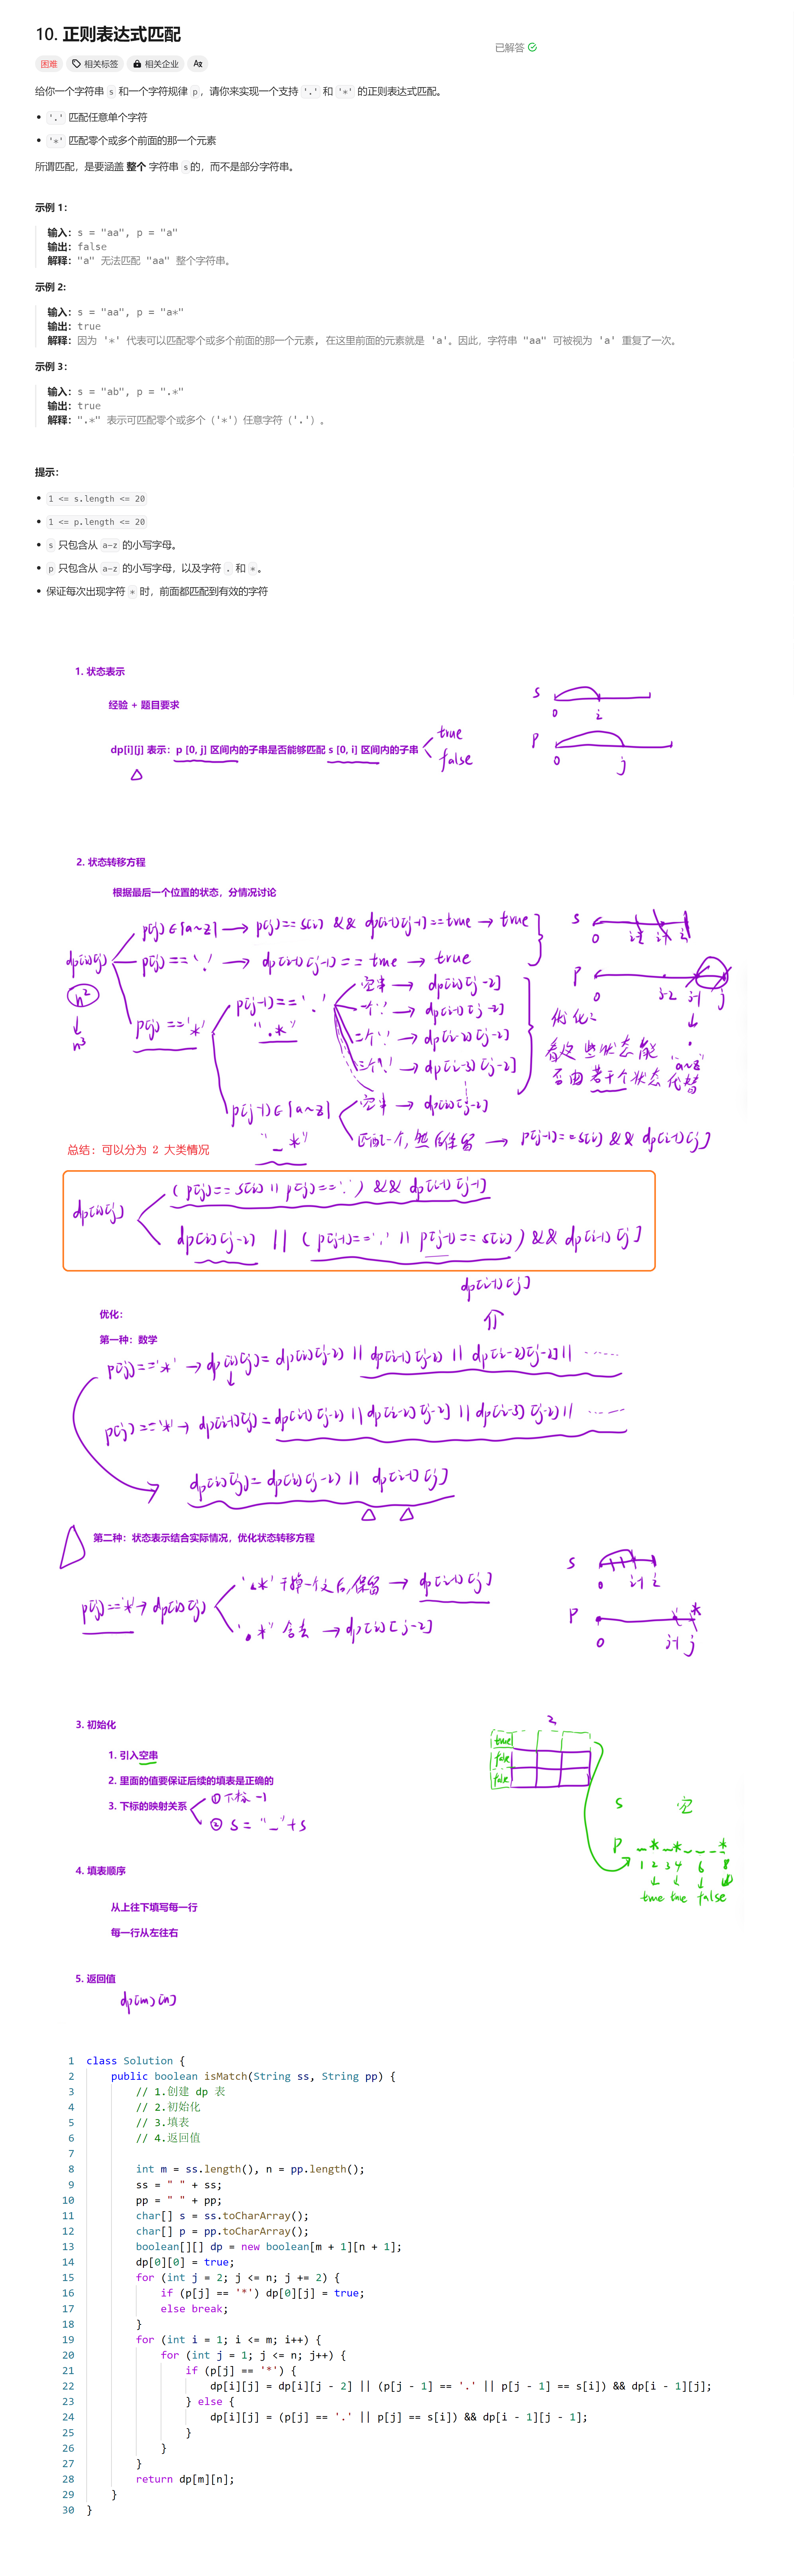 10. 正则表达式匹配
已解答
困难 相关标签 相关企业
给你一个字符串 s 和一个字符规律 p，请你来实现一个支持 '.' 和 '*' 的正则表达式匹配。
• '.' 匹配任意单个字符
• '*' 匹配零个或多个前面的那一个元素
所谓匹配，是要涵盖 整个 字符串 s 的，而不是部分字符串。
示例 1：
输入：s = "aa", p = "a"
输出：false
解释："a" 无法匹配 "aa" 整个字符串。
示例 2:
输入：s = "aa", p = "a*"
输出：true
解释：因为 '*' 代表可以匹配零个或多个前面的那一个元素, 在这里前面的元素就是 'a'。因此，字符串 "aa" 可被视为 'a' 重复了一次。
示例 3：
输入：s = "ab", p = ".*"
输出：true
解释：".*" 表示可匹配零个或多个（'*'）任意字符（'.'）。
提示：
• 1 <= s.length <= 20
• 1 <= p.length <= 20
• s 只包含从 a-z 的小写字母。
• p 只包含从 a-z 的小写字母，以及字符 . 和 *。
• 保证每次出现字符 * 时，前面都匹配到有效的字符
1. 状态表示
经验 + 题目要求
s
0 i
p
0 j
dp[i][j] 表示：p [0, j] 区间内的子串是否能够匹配 s [0, i] 区间内的子串
true
false
2. 状态转移方程
根据最后一个位置的状态，分情况讨论
dp[i][j]
n²
n³
p[j]∈[a~z] → p[j]==s[i] && dp[i-1][j-1]==true → true
p[j]=='.' → dp[i-1][j-1]==true → true
p[j]=='*'
p[j-1]=='.'
".*"
空串 → dp[i][j-2]
一个'.' → dp[i-1][j-2]
二个'.' → dp[i-2][j-2]
三个'.' → dp[i-3][j-2]
p[j-1]∈[a~z]
"_*"
空串 → dp[i][j-2]
匹配一个，然后保留 → p[j-1]==s[i] && dp[i-1][j]
s
0 i-2 i-1 i
p
0 j-2 j-1 j
"a~z"
优化：
看这些状态能
否由若干个状态代替
总结：可以分为 2 大类情况
dp[i][j]
(p[j]==s[i] || p[j]=='.') && dp[i-1][j-1]
dp[i][j-2] || (p[j-1]=='.' || p[j-1]==s[i]) && dp[i-1][j]
dp[i-1][j]
优化：
第一种：数学
p[j]=='*' → dp[i][j]= dp[i][j-2] || dp[i-1][j-2] || dp[i-2][j-2] || ......
p[j]=='*' → dp[i-1][j]= dp[i-1][j-2] || dp[i-2][j-2] || dp[i-3][j-2] || ......
dp[i][j]= dp[i][j-2] || dp[i-1][j]
第二种：状态表示结合实际情况，优化状态转移方程
p[j]=='*' → dp[i][j]
'.*' 干掉一个之后,保留 → dp[i-1][j]
'.*' 舍去 → dp[i][j-2]
s
0 i-1 i
p
*
0 j-1 j
3. 初始化
1. 引入空串
2. 里面的值要保证后续的填表是正确的
3. 下标的映射关系
① 下标 -1
② s = "_" + s
true
false
false
s 空
p _ * _ * _ _ _ *
1 2 3 4 6 8
true true false
4. 填表顺序
从上往下填写每一行
每一行从左往右
5. 返回值
dp[m][n]
1 class Solution {
2 public boolean isMatch(String ss, String pp) {
3 // 1.创建 dp 表
4 // 2.初始化
5 // 3.填表
6 // 4.返回值
7
8 int m = ss.length(), n = pp.length();
9 ss = " " + ss;
10 pp = " " + pp;
11 char[] s = ss.toCharArray();
12 char[] p = pp.toCharArray();
13 boolean[][] dp = new boolean[m + 1][n + 1];
14 dp[0][0] = true;
15 for (int j = 2; j <= n; j += 2) {
16 if (p[j] == '*') dp[0][j] = true;
17 else break;
18 }
19 for (int i = 1; i <= m; i++) {
20 for (int j = 1; j <= n; j++) {
21 if (p[j] == '*') {
22 dp[i][j] = dp[i][j - 2] || (p[j - 1] == '.' || p[j - 1] == s[i]) && dp[i - 1][j];
23 } else {
24 dp[i][j] = (p[j] == '.' || p[j] == s[i]) && dp[i - 1][j - 1];
25 }
26 }
27 }
28 return dp[m][n];
29 }
30 }